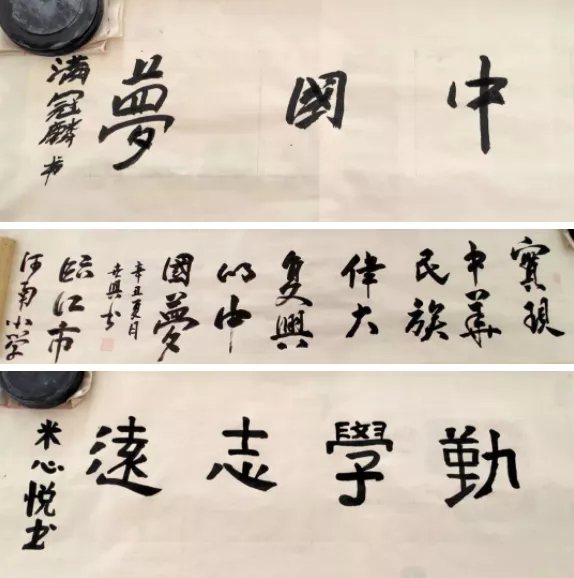 中國夢
满冠麟书
實現
中華
民族
偉大
复興
的中
國夢
辛丑夏月
臨江市
河南小学
勤學志遠
米心悦书